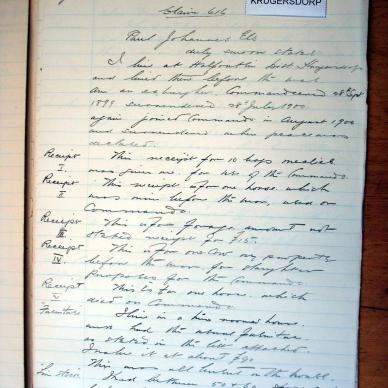 KRUGERSDORP
Claim 616
Paul Johannes Els
duly sworn states
I live at dist Krugersdorp
and lived there before the war
Am an exburgher, Commandeered 28th Sept
1899 surrendered 28 July 1900
again joined Commando in August 1900
and surrendered when peace was
declared.
Receipt I. This receipt for 10 bags mealies
was given me. for use of the Commando.
Receipt II This receipt is for one horse. which
was mine before the war, used on
Commando.
Receipt III This is for forage amount not
stated receipt for £15.
Receipt IV. This is for one Cow my property
before the war for slaughter
purposes for the Commando
Receipt V This is for one horse. which
died on Commando.
Furniture I live in a roomed house.
was had the usual furniture.
as stated in the list attached.
I make it at about £90.
This was all burnt in the house.
I had between 50 & 60